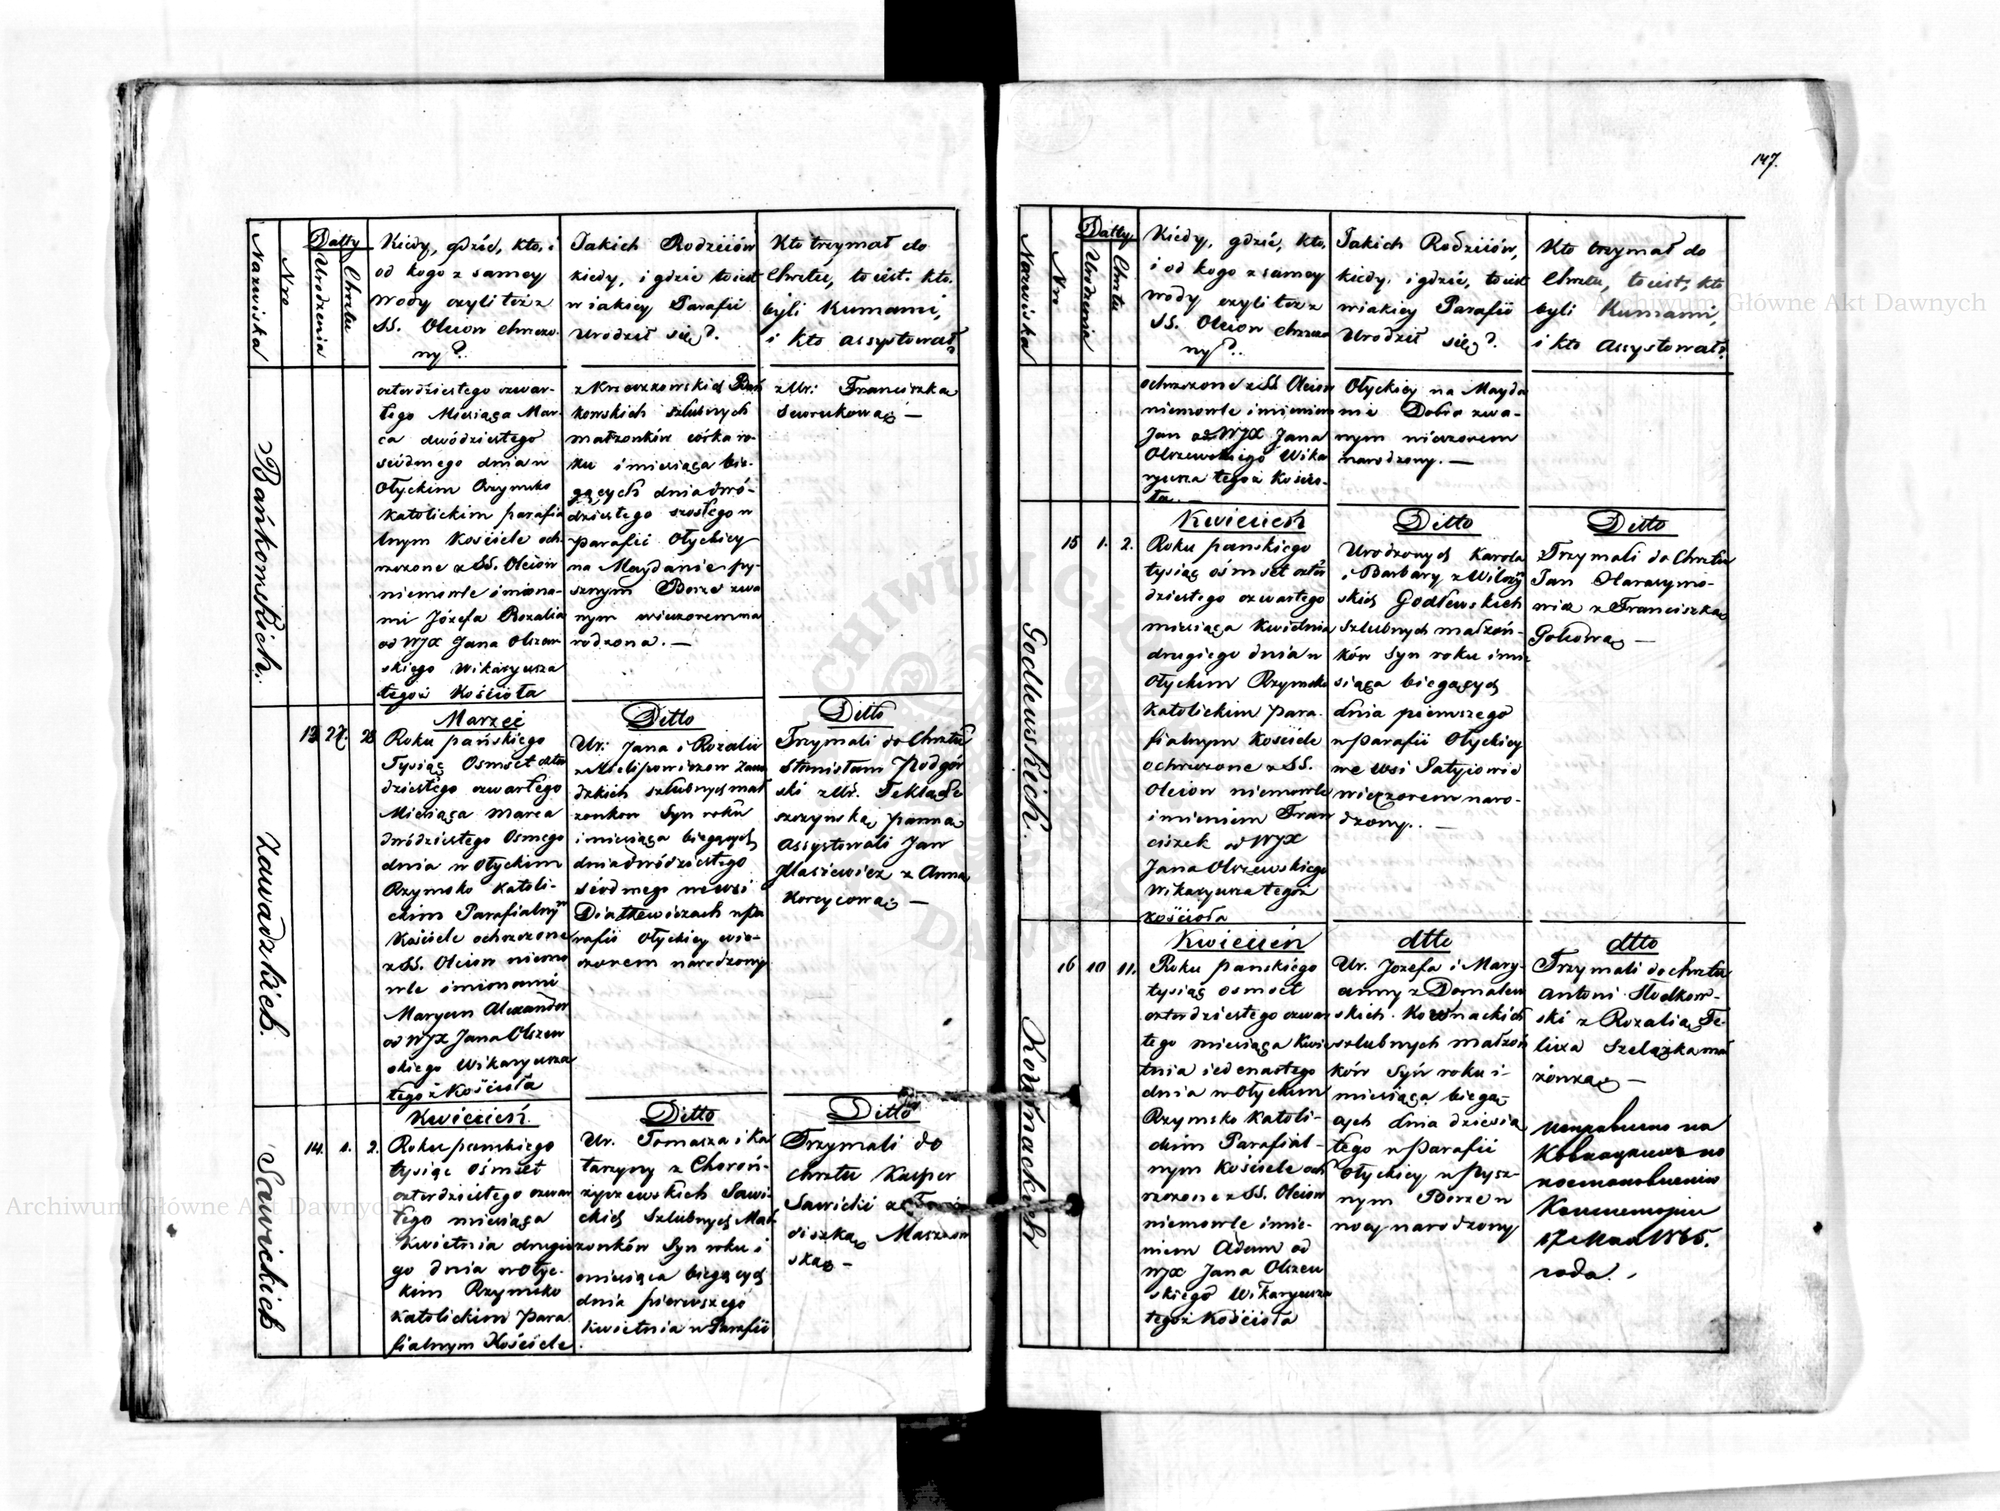 147.
Nazwiska
Nro
Datty
Urodzenia
Chrztu
Kiedy, gdzie, kto, i
od kogo z samey
wody czyli też z
SS. Oleiow chrzczo-
ny?
Jakich Rodziiów
kiedy, i gdzie to iest
w iakiey Parafii
Urodził się?
Kto trzymał do
Chrztu, to iest. kto.
byli Kumami,
i kto assystował?
Bańkowskich.
czterdziestego czwar-
tego Miesiąca Mar-
ca dwódziestego
siódmego dnia w
Ołyckim Rzymsko
Katolickim parafia
lnym Kościele och-
rzczone z SS. Oleiow
niemowle imiona-
mi Józefa Rozalia
od WJX Jana Olszew
skiego Wikaryusza
tegoż Kościoła
z Krzeczkowskich Bań
kowskich szlubnych
małżonków córka ro-
ku i miesiąca bie-
gących dnia dwó-
dziestego szóstego w
parafii Ołyckiey
na Maydanie py-
sznym Borze zwa
nym wieczorem na
rodzona. —
z Ur: Franciszką
—
Zawadzkich.
13 27. 28
Marzec
Roku pańskiego
Tysiąc Osmset czter
dziestego czwartego
Miesiąca marca
dwódziestego Osmego
dnia w Ołyckim
Rzymsko Katoli-
ckim Parafialnym
Kościele ochrzczone
z SS. Oleiow niemo
wle imionami
Maryan Alexander
od WJX Jana Olszew
skiego Wikaryusza
tegoż Kościoła
Ditto
Ur: Jana i Rozalii
z Filipowiczow Zawa
dzkich szlubnych mał
żonkow Syn roku
i miesiąca biegących
dnia dwódziestego
siódmego we wsi
Diatkewiczach w pa
rafii Ołyckiey wie-
czorem narodzony
Ditto
Trzymali do Chrztu
Stanisław Podgór
ski z Ur. Teklą
panną
Assystowali Jan
z Anną
—
Sawickich
14. 1. 2.
Kwiecień.
Roku pańskiego
tysiąc ośmset
czterdziestego czwar
tego miesiąca
Kwietnia drugie
go dnia w Ołyc-
kim Rzymsko
Katolickim Para
fialnym Kościele
Ditto
Ur. Tomasza i Ka
tarzyny z Choroń-
Sawi-
ckich Szlubnych Mał
żonków Syn roku i
miesiąca biegących
dnia pierwszego
Kwietnia w Parafii
Ditto
Trzymali do
chrztu Kasper
Sawicki z Fran
ciszką Maszkow
ską —
Nazwiska
Nro
Datty
Urodzenia
Chrztu
Kiedy, gdzie, kto,
i od kogo z samey
wody czyli też z
SS. Oleiow chrzczo
ny?
Jakich Rodziiów,
kiedy, i gdzie, to iest
w iakiey Parafii
Urodził się?
Kto trzymał do
Chrztu, to iest, kto
byli Kumami,
i kto Assystował?
ochrzczone z SS Oleiow
niemowle imieniem
Jan od WJX Jana
Olszewskiego Wika
ryusza tegoż Kościo-
ła. —
Ołyckiey na Mayda
nie Dobra zwa-
nym wieczorem
narodzony. —
Godlewskich.
15 1. 2.
Kwiecień
Roku pańskiego
tysiąc ośmset czter
dziestego czwartego
miesiąca Kwietnia
drugiego dnia w
Ołyckim Rzymsko
Katolickim Para-
fialnym Kościele
ochrzczone z SS.
Oleiow niemowle
imieniem Fran
ciszek od WJX
Jana Olszewskiego
Wikaryusza tegoż
Kościoła
Ditto
Urodzonych Karola
i Barbary z Wilczyń
skich Godlewskich
Szlubnych małżoń-
ków Syn roku i mie
siąca biegących
dnia pierwszego
w parafii Ołyckiey
we wsi Satyiowie
wieczorem naro-
dzony. —
Ditto
Trzymali do Chrztu
Jan Harasymo-
wicz z Franciszką
—
16 10 11.
Kwiecień
Roku pańskiego
tysiąc osmset
czterdziestego czwar
tego miesiąca Kwie
tnia iedenastego
dnia w Ołyckim
Rzymsko Katoli-
ckim Parafial-
nym Kościele och
rzczone z SS. Oleiow
niemowle imie-
niem Adam od
WJX Jana Olszew
skiego Wikaryusza
tegoż Kościoła
dtto
Ur. Józefa i Mary-
anny z Domalew
skich
szlubnych małżoń
ków Syn roku i
miesiąca biegą
cych dnia dziesią
tego w parafii
Ołyckiey w pysz-
nym Borze w
nocy narodzony
dtto
Trzymali do chrztu
Antoni Hodkow-
ski z Rozalią Fe-
lixa Szelązka mał
żonką —
Исправлено на
по
постановленію
Консисторіи
17 Мая 1865.
года.